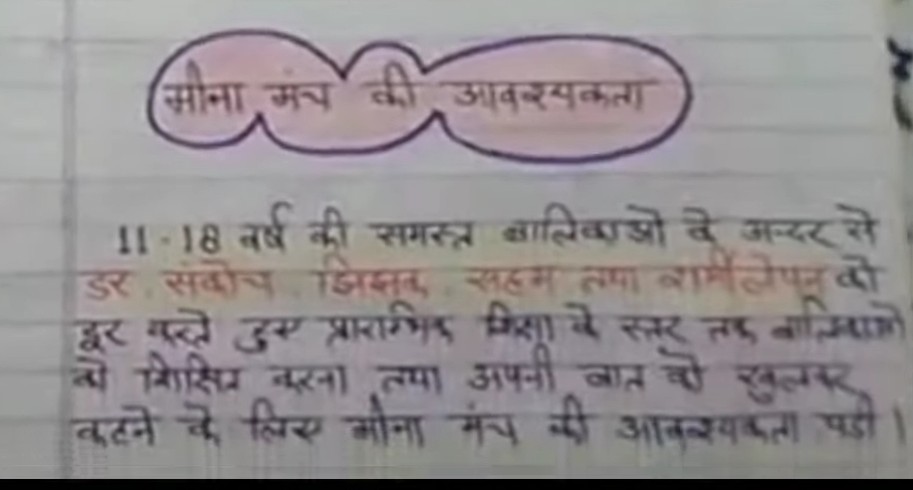 मीना मंच की आवश्यकता
11-18 वर्ष की समस्त बालिकाओं के अन्दर से
डर, संकोच, झिझक, सहम तथा शर्मीलेपन को
दूर करते हुए प्रारम्भिक शिक्षा के स्तर तक बालिकाओं
को शिक्षित करना तथा अपनी बात को खुलकर
कहने के लिए मीना मंच की आवश्यकता पड़ी।